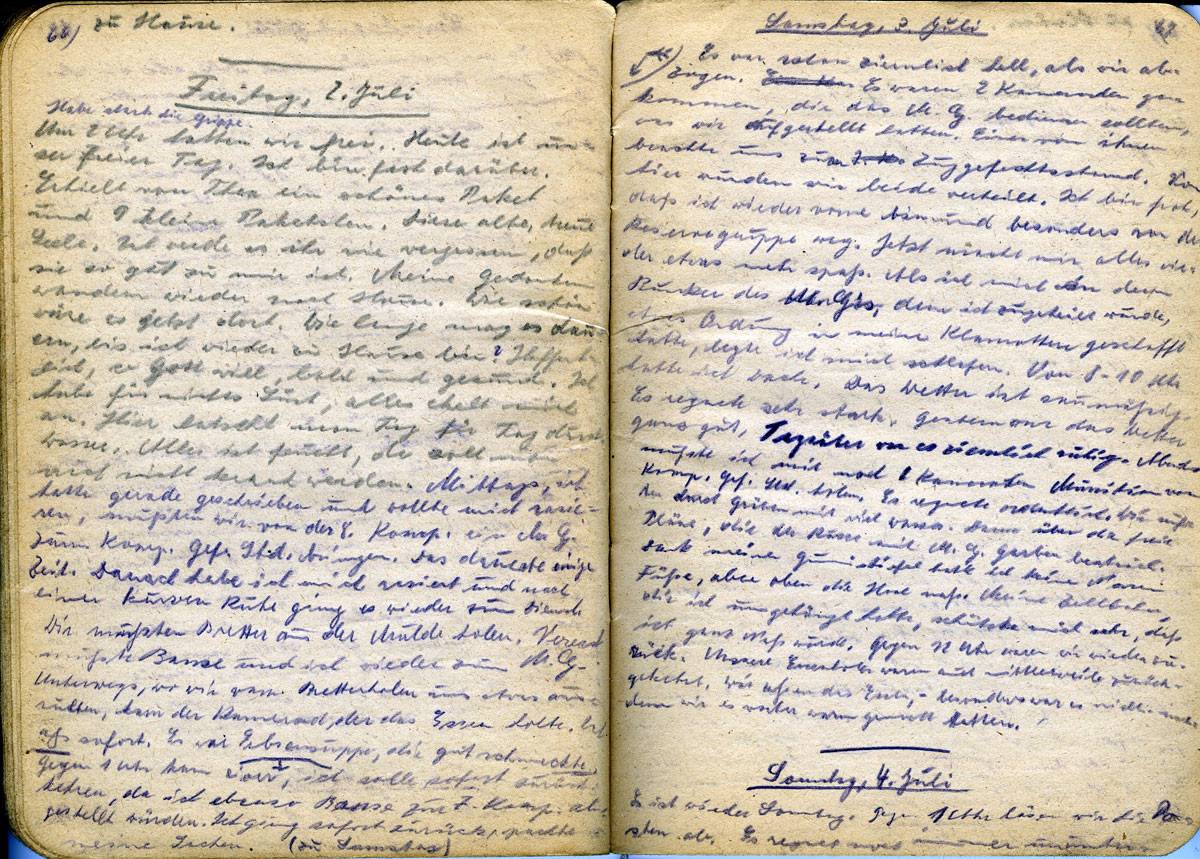 66) zu Hause.
Freitag, 2. Juli
Habe stark die Grippe.
Um 2 Uhr hatten wir frei. Heute ist un-
ser freier Tag. Ich bin froh darüber.
Erhielt von Thea ein schönes Paket
und 9 kleine Paketchen. Diese alte, treue
Seele. Ich werde es ihr nie vergessen, daß
sie so gut zu mir ist. Meine Gedanken
wandern wieder nach Hause. Wie schön
wäre es jetzt dort. Wie lange mag es dau-
ern, bis ich wieder zu Hause bin? Hoffent-
lich, so Gott will, bald und gesund. Ich
habe für nichts Lust, alles ekelt mich
an. Hier latscht man Tag für Tag durch
Wasser. Alles ist feucht, da soll man
nicht krank werden. Mittags, ich
hatte gerade geschrieben und wollte mich rasie-
ren, mußten wir von der 8. Komp. ein M.G.
zum Komp. Gef. Std. bringen. Das dauerte einige
Zeit. Danach habe ich mich rasiert und nach
einer kurzen Ruhe ging es wieder zum Dienst
Wir mußten Bretter aus der Mulde holen.
mußte Banse und ich wieder zum M.G.
Unterwegs, wo wir vom Bretterholen uns etwas aus-
ruhten, kam der Kamerad, der das Essen holte. Ich
aß sofort. Es war Erbsensuppe, die gut schmeckte.
Gegen 1 Uhr kam ich solle sofort zurück-
kehren, da ich ebenso Banse zur 7. Komp. ab-
gestellt würden. Ich ging sofort zurück, packte
meine Sachen. (zu Samstag)
Samstag, 3. Juli 67
Es war schon ziemlich hell, als wir ab-
zogen. Es waren 2 Kameraden ge-
kommen, die das M.G. bedienen sollten,
was wir aufgestellt hatten. Einer von ihnen
brachte uns zum Zuggefechtsstand. Von
hier wurden wir beide verteilt. Ich bin froh,
daß ich wieder vorne bin und besonders von der
Reservegruppe weg. Jetzt macht mir alles wie-
der etwas mehr Spaß. Als ich mich in dem
Bunker des M.G.s, dem ich zugeteilt wurde,
etwas Ordnung in meine Klamotten geschafft
hatte, legte ich mich schlafen. Von 8-10 Uhr
hatte ich Wach. Das Wetter ist saumäßig.
Es regnete sehr stark, gestern war das Wetter
ganz gut. Tagsüber war es ziemlich ruhig. Abends
mußte ich mit noch 1 Kameraden Munition vom
Komp. Gef. Std. holen. Es regnete ordentlich. Wir mußten
durch Gräben mit viel Wasser. Dann über die freie
Pläne, die der Russe mit M.G. garben bestrich.
Dank meiner Gummistiefel hatte ich keine nassen
Füße, aber oben die Hose naß. Meine Zeltbahn,
die ich umgehängt hatte, schützte mich sehr, daß
ich ganz naß wurde. Gegen 12 Uhr waren wir wieder zu-
rück. Unsere Essenholer waren auch mittlerweile zurück-
gekehrt, wir aßen das Essen, besonders war es nicht,
denn wir es weiter warm gemacht hatten.
Sonntag, 4. Juli
Es ist wieder Sonntag. Gegen 1 Uhr lösen wir die Po-
sten ab. Es regnet noch immer